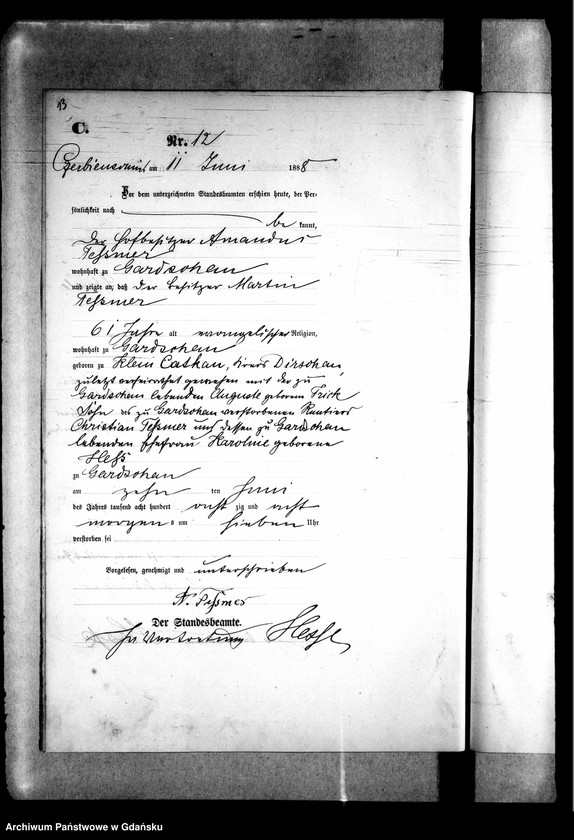 13
C.
Nr. 12
am 11 Juni 1888
Vor dem unterzeichneten Standesbeamten erschien heute, der Per-
sönlichkeit nach
be kannt,
Der Hofbesitzer Amandus
Teßmer
wohnhaft zu Gardschau
und zeigte an, daß der Besitzer Martin
Teßmer
61 Jahre alt evangelischer Religion,
wohnhaft zu Gardschau
geboren zu Klein Kreis Dirschau,
zuletzt verheirathet gewesen mit der zu
Gardschau lebenden Auguste geborenen Frick
Sohn des zu Gardschau verstorbenen Rentiers
Christian Teßmer und dessen zu Gardschau
lebenden Ehefrau Karoline geborene
Heß
zu Gardschau
am zehn ten Juni
des Jahres tausend acht hundert acht zig und acht
morgen s um sieben Uhr
verstorben sei
Vorgelesen, genehmigt und unterschrieben
A. Teßmer
Der Standesbeamte.
In Vertretung
Archiwum Państwowe w Gdańsku